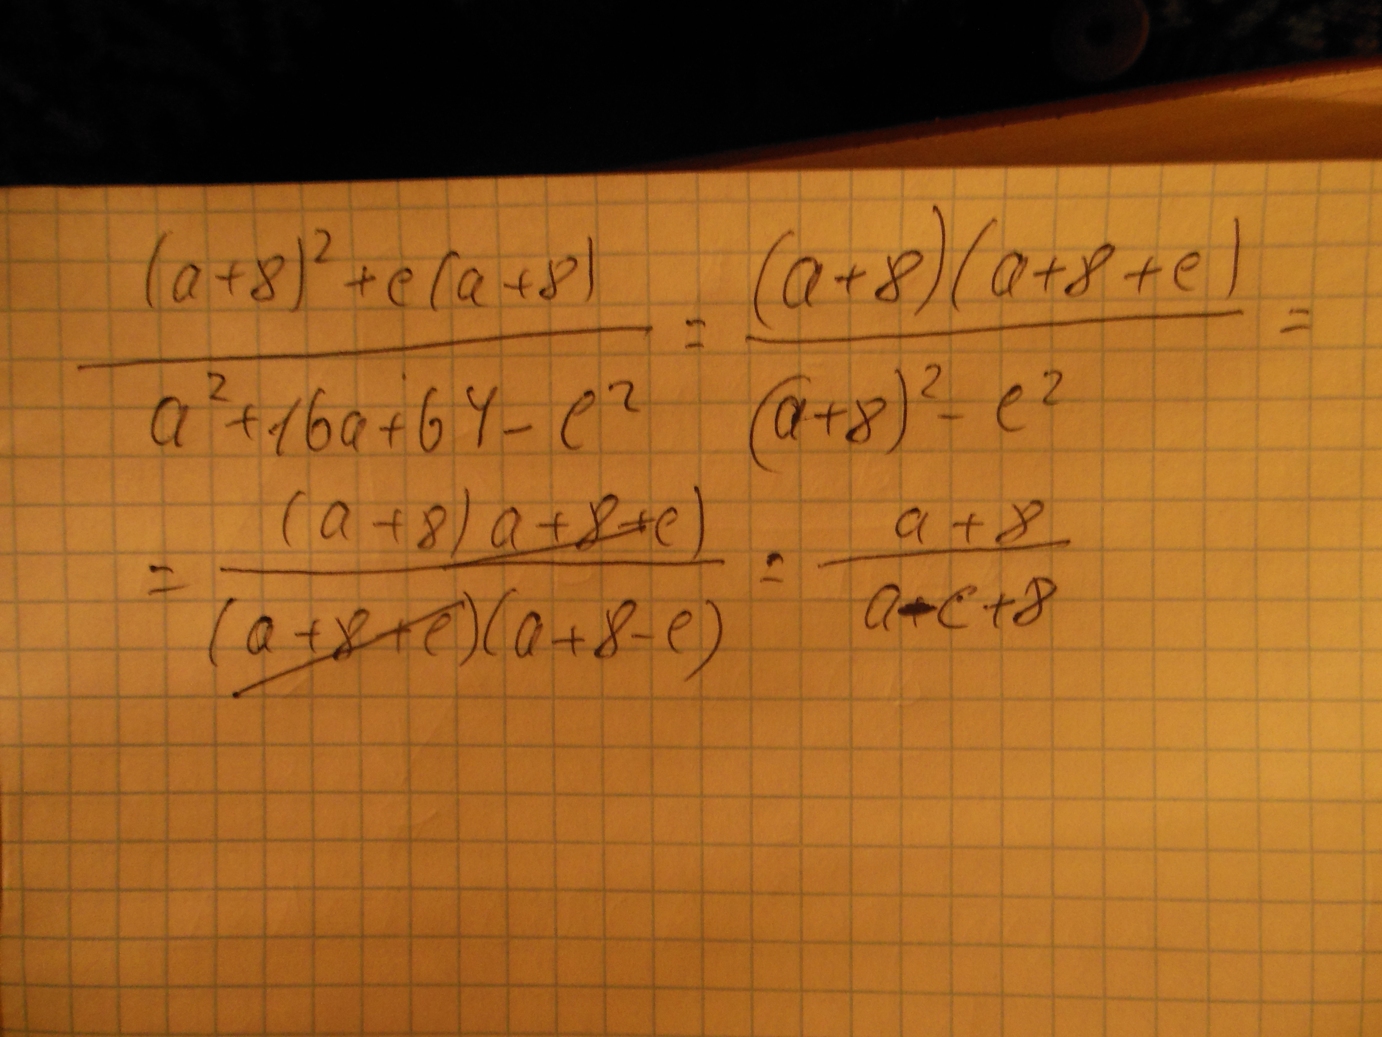 (a+8)²+e(a+8) / a²+16a+64-e² = (a+8)(a+8+e) / (a+8)²-e² =
= (a+8) a+8+e) / (a+8+e)(a+8-e) = a+8 / a-e+8